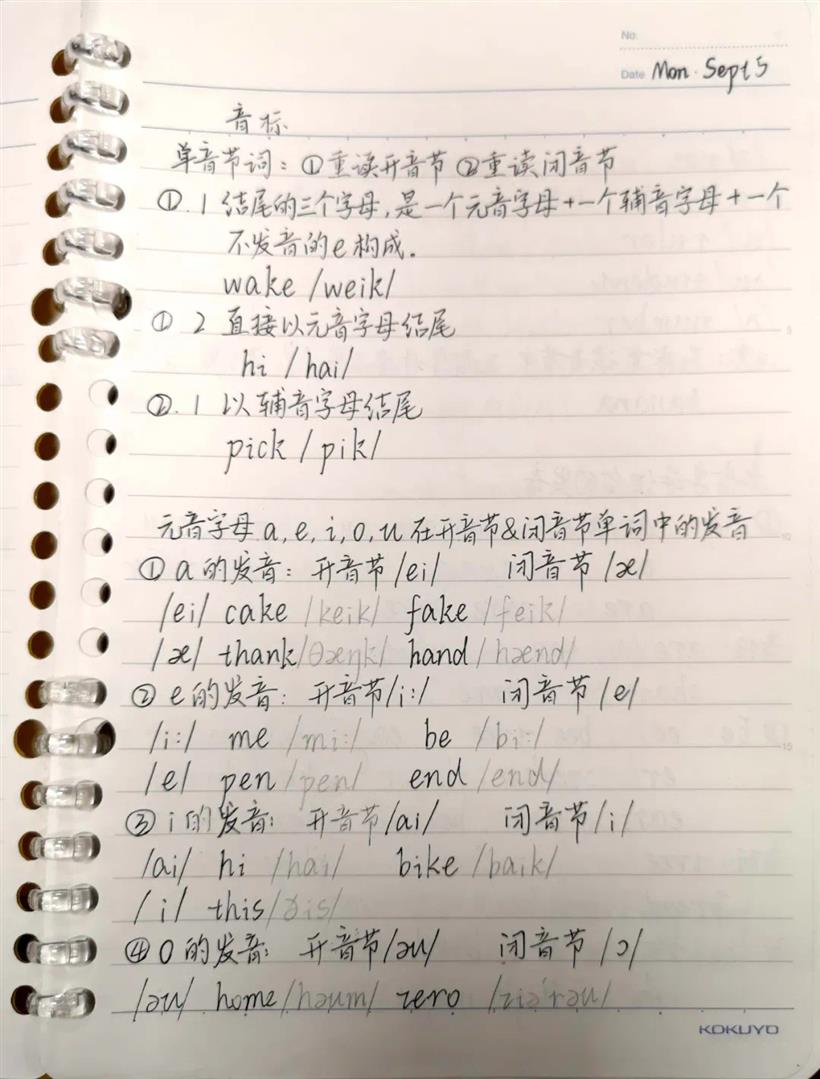 No.
Date Mon. Sept 5
音标
单音节词：①重读开音节 ②重读闭音节
①.1 结尾的三个字母，是一个元音字母+一个辅音字母+一个
不发音的e构成.
wake /weik/
① 2 直接以元音字母结尾
hi /hai/
②.1 以辅音字母结尾
pick /pik/
元音字母 a, e, i, o, u 在开音节&闭音节单词中的发音
① a 的发音： 开音节 /ei/ 闭音节 /æ/
/ei/ cake /keik/ fake /feik/
/æ/ thank /θæŋk/ hand /hænd/
② e 的发音： 开音节 /i:/ 闭音节 /e/
/i:/ me /mi:/ be /bi:/
/e/ pen /pen/ end /end/
③ i 的发音： 开音节 /ai/ 闭音节 /i/
/ai/ hi /hai/ bike /baik/
/i/ this /ðis/
④ o 的发音： 开音节 /əu/ 闭音节 /ɔ/
/əu/ home /həum/ zero /ziərəu/
KOKUYO